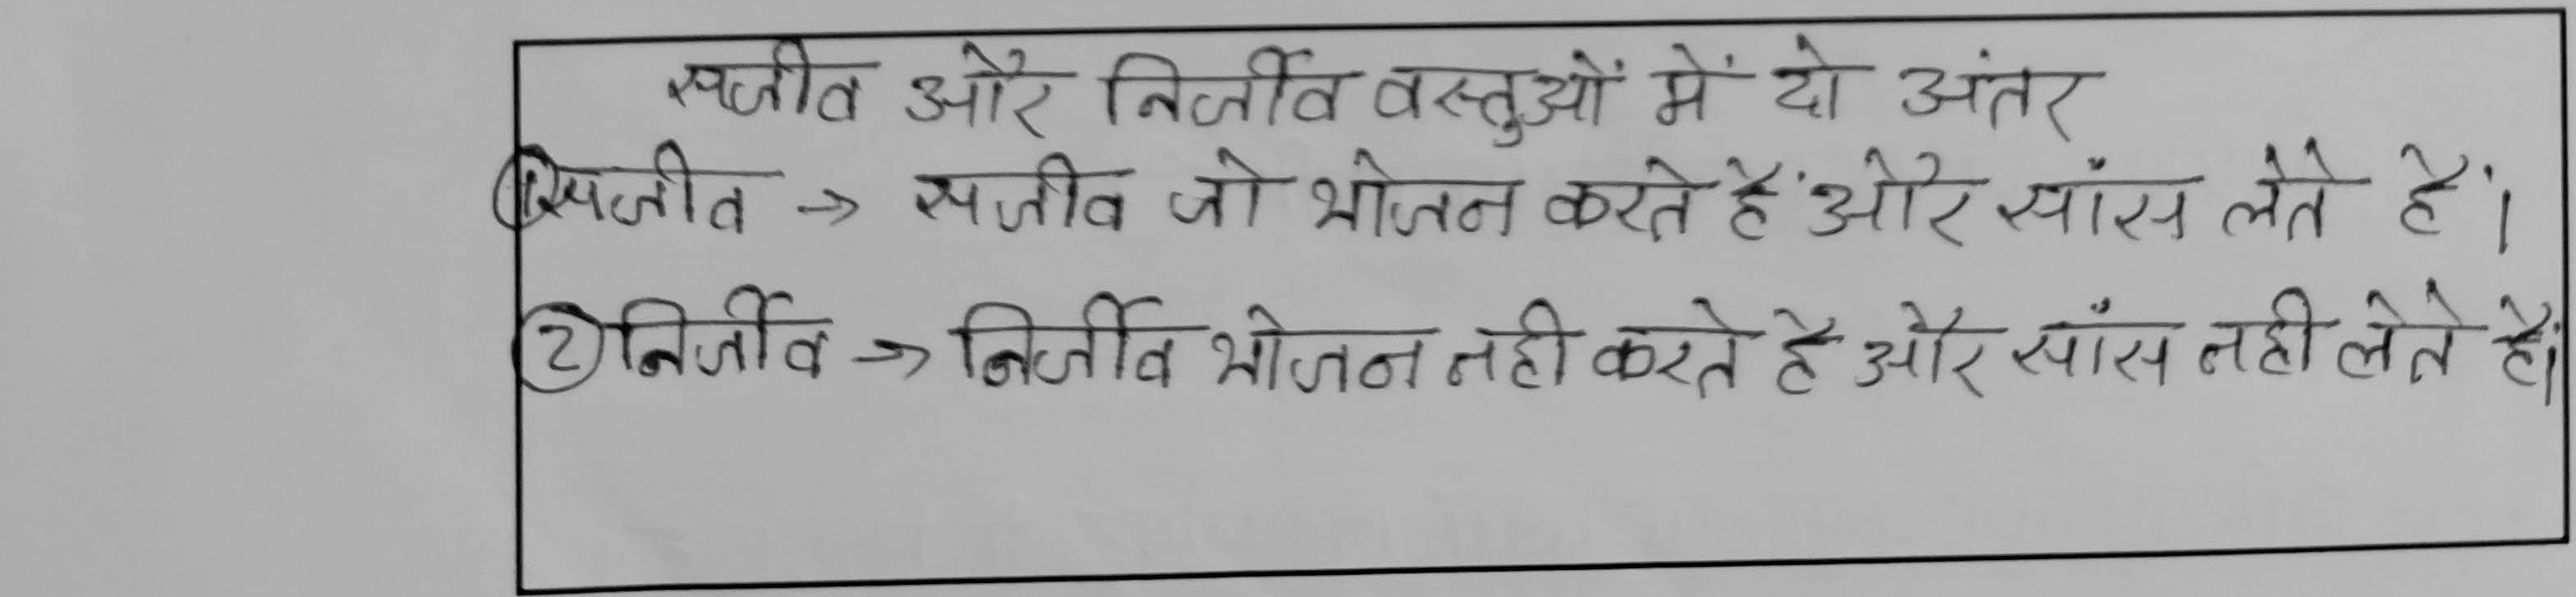 सजीव और निर्जीव वस्तुओं में दो अंतर
① सजीव → सजीव जो भोजन करते हैं और सांस लेते हैं।
② निर्जीव → निर्जीव भोजन नही करते है और साँस नही लेते हैं।